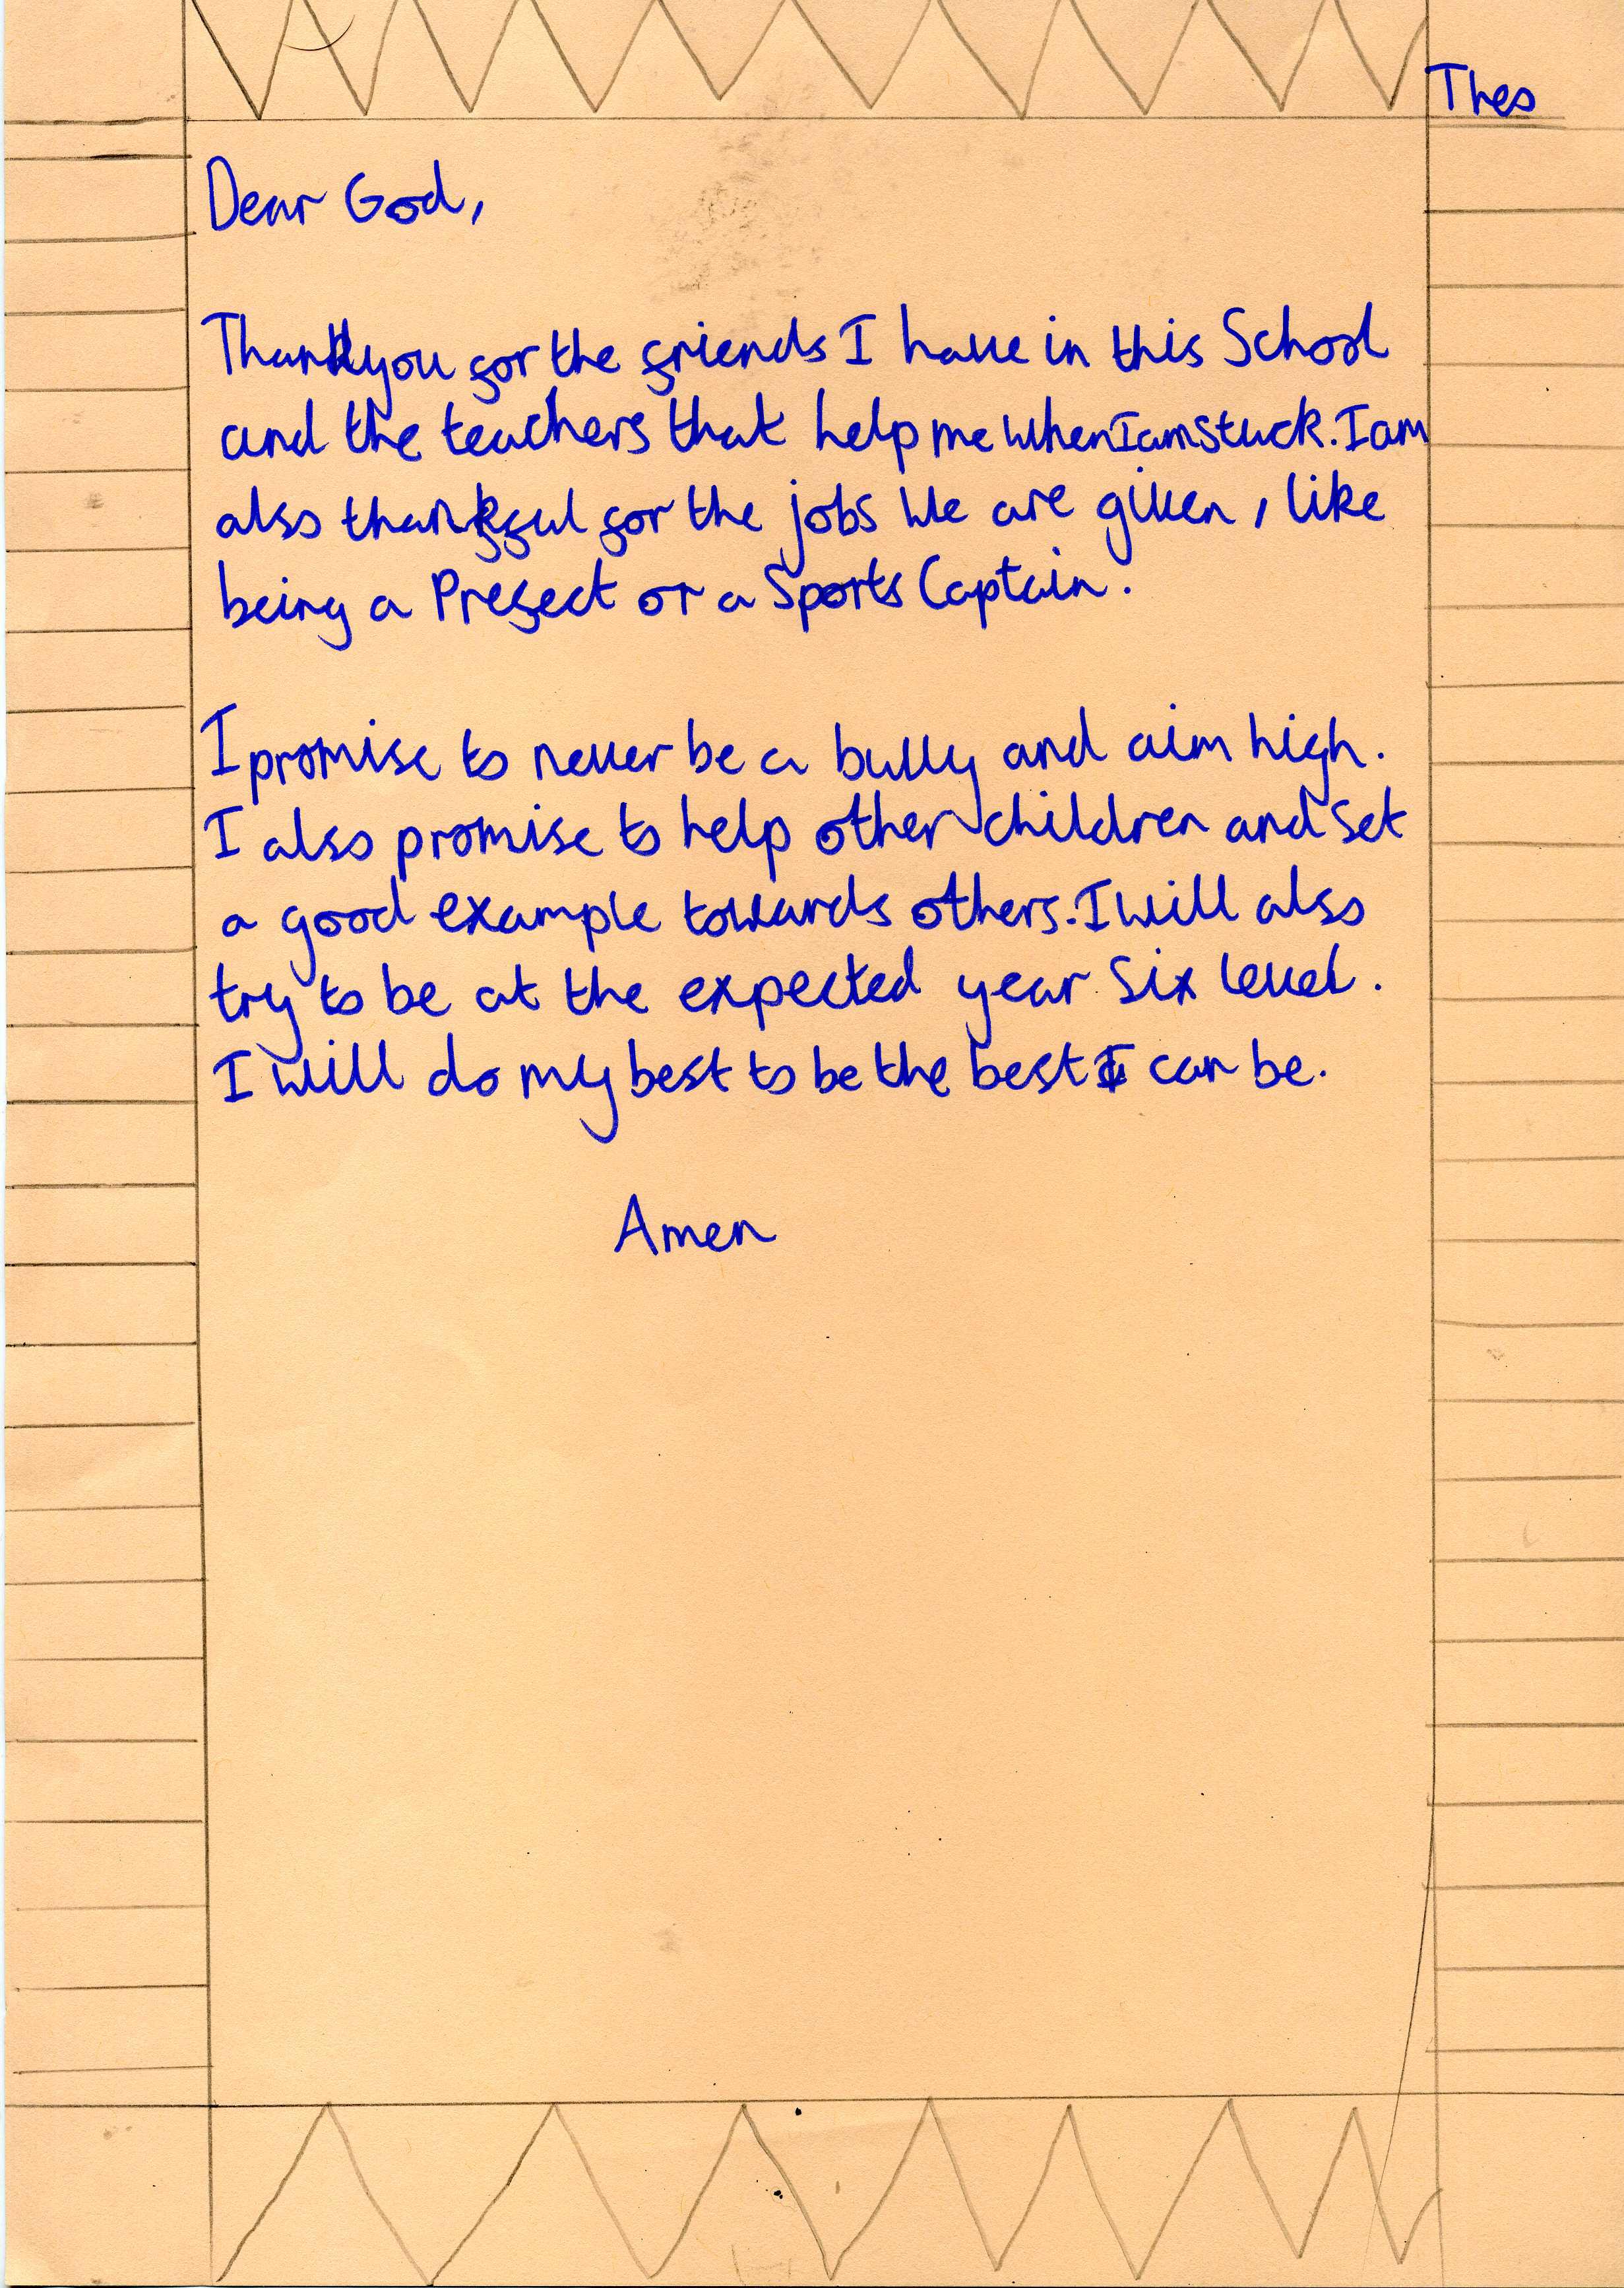 Theo
Dear God,
Thankyou for the friends I have in this School
and the teachers that help me when I am stuck. I am
also thankful for the jobs we are given, like
being a Prefect or a Sports Captain.
I promise to never be a bully and aim high.
I also promise to help other children and set
a good example towards others. I will also
try to be at the expected year Six level.
I will do my best to be the best I can be.
Amen